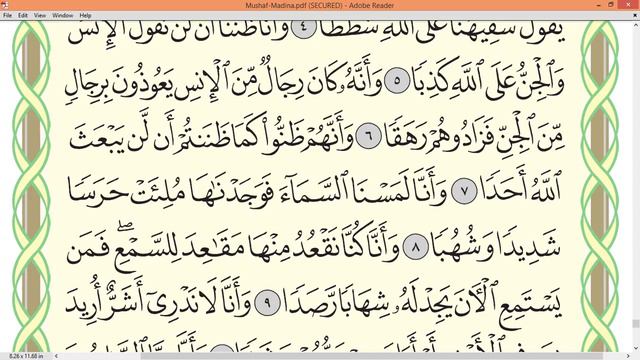 Mushaf-Madina.pdf (SECURED) - Adobe Reader
File Edit View Window Help
يَقُولُ سَفِيهُنَا عَلَى ٱللَّهِ شَطَطًا ٤ وَأَنَّا ظَنَنَّآ أَن لَّن تَقُولَ ٱلْإِنسُ
وَٱلْجِنُّ عَلَى ٱللَّهِ كَذِبًا ٥ وَأَنَّهُۥ كَانَ رِجَالٌ مِّنَ ٱلْإِنسِ يَعُوذُونَ بِرِجَالٍ
مِّنَ ٱلْجِنِّ فَزَادُوهُمْ رَهَقًا ٦ وَأَنَّهُمْ ظَنُّوا۟ كَمَا ظَنَنتُمْ أَن لَّن يَبْعَثَ
ٱللَّهُ أَحَدًا ٧ وَأَنَّا لَمَسْنَا ٱلسَّمَآءَ فَوَجَدْنَٰهَا مُلِئَتْ حَرَسًا
شَدِيدًا وَشُهُبًا ٨ وَأَنَّا كُنَّا نَقْعُدُ مِنْهَا مَقَٰعِدَ لِلسَّمْعِ ۖ فَمَن
يَسْتَمِعِ ٱلْـَٔانَ يَجِدْ لَهُۥ شِهَابًا رَّصَدًا ٩ وَأَنَّا لَا نَدْرِىٓ أَشَرٌّ أُرِيدَ
8.26 x 11.68 in